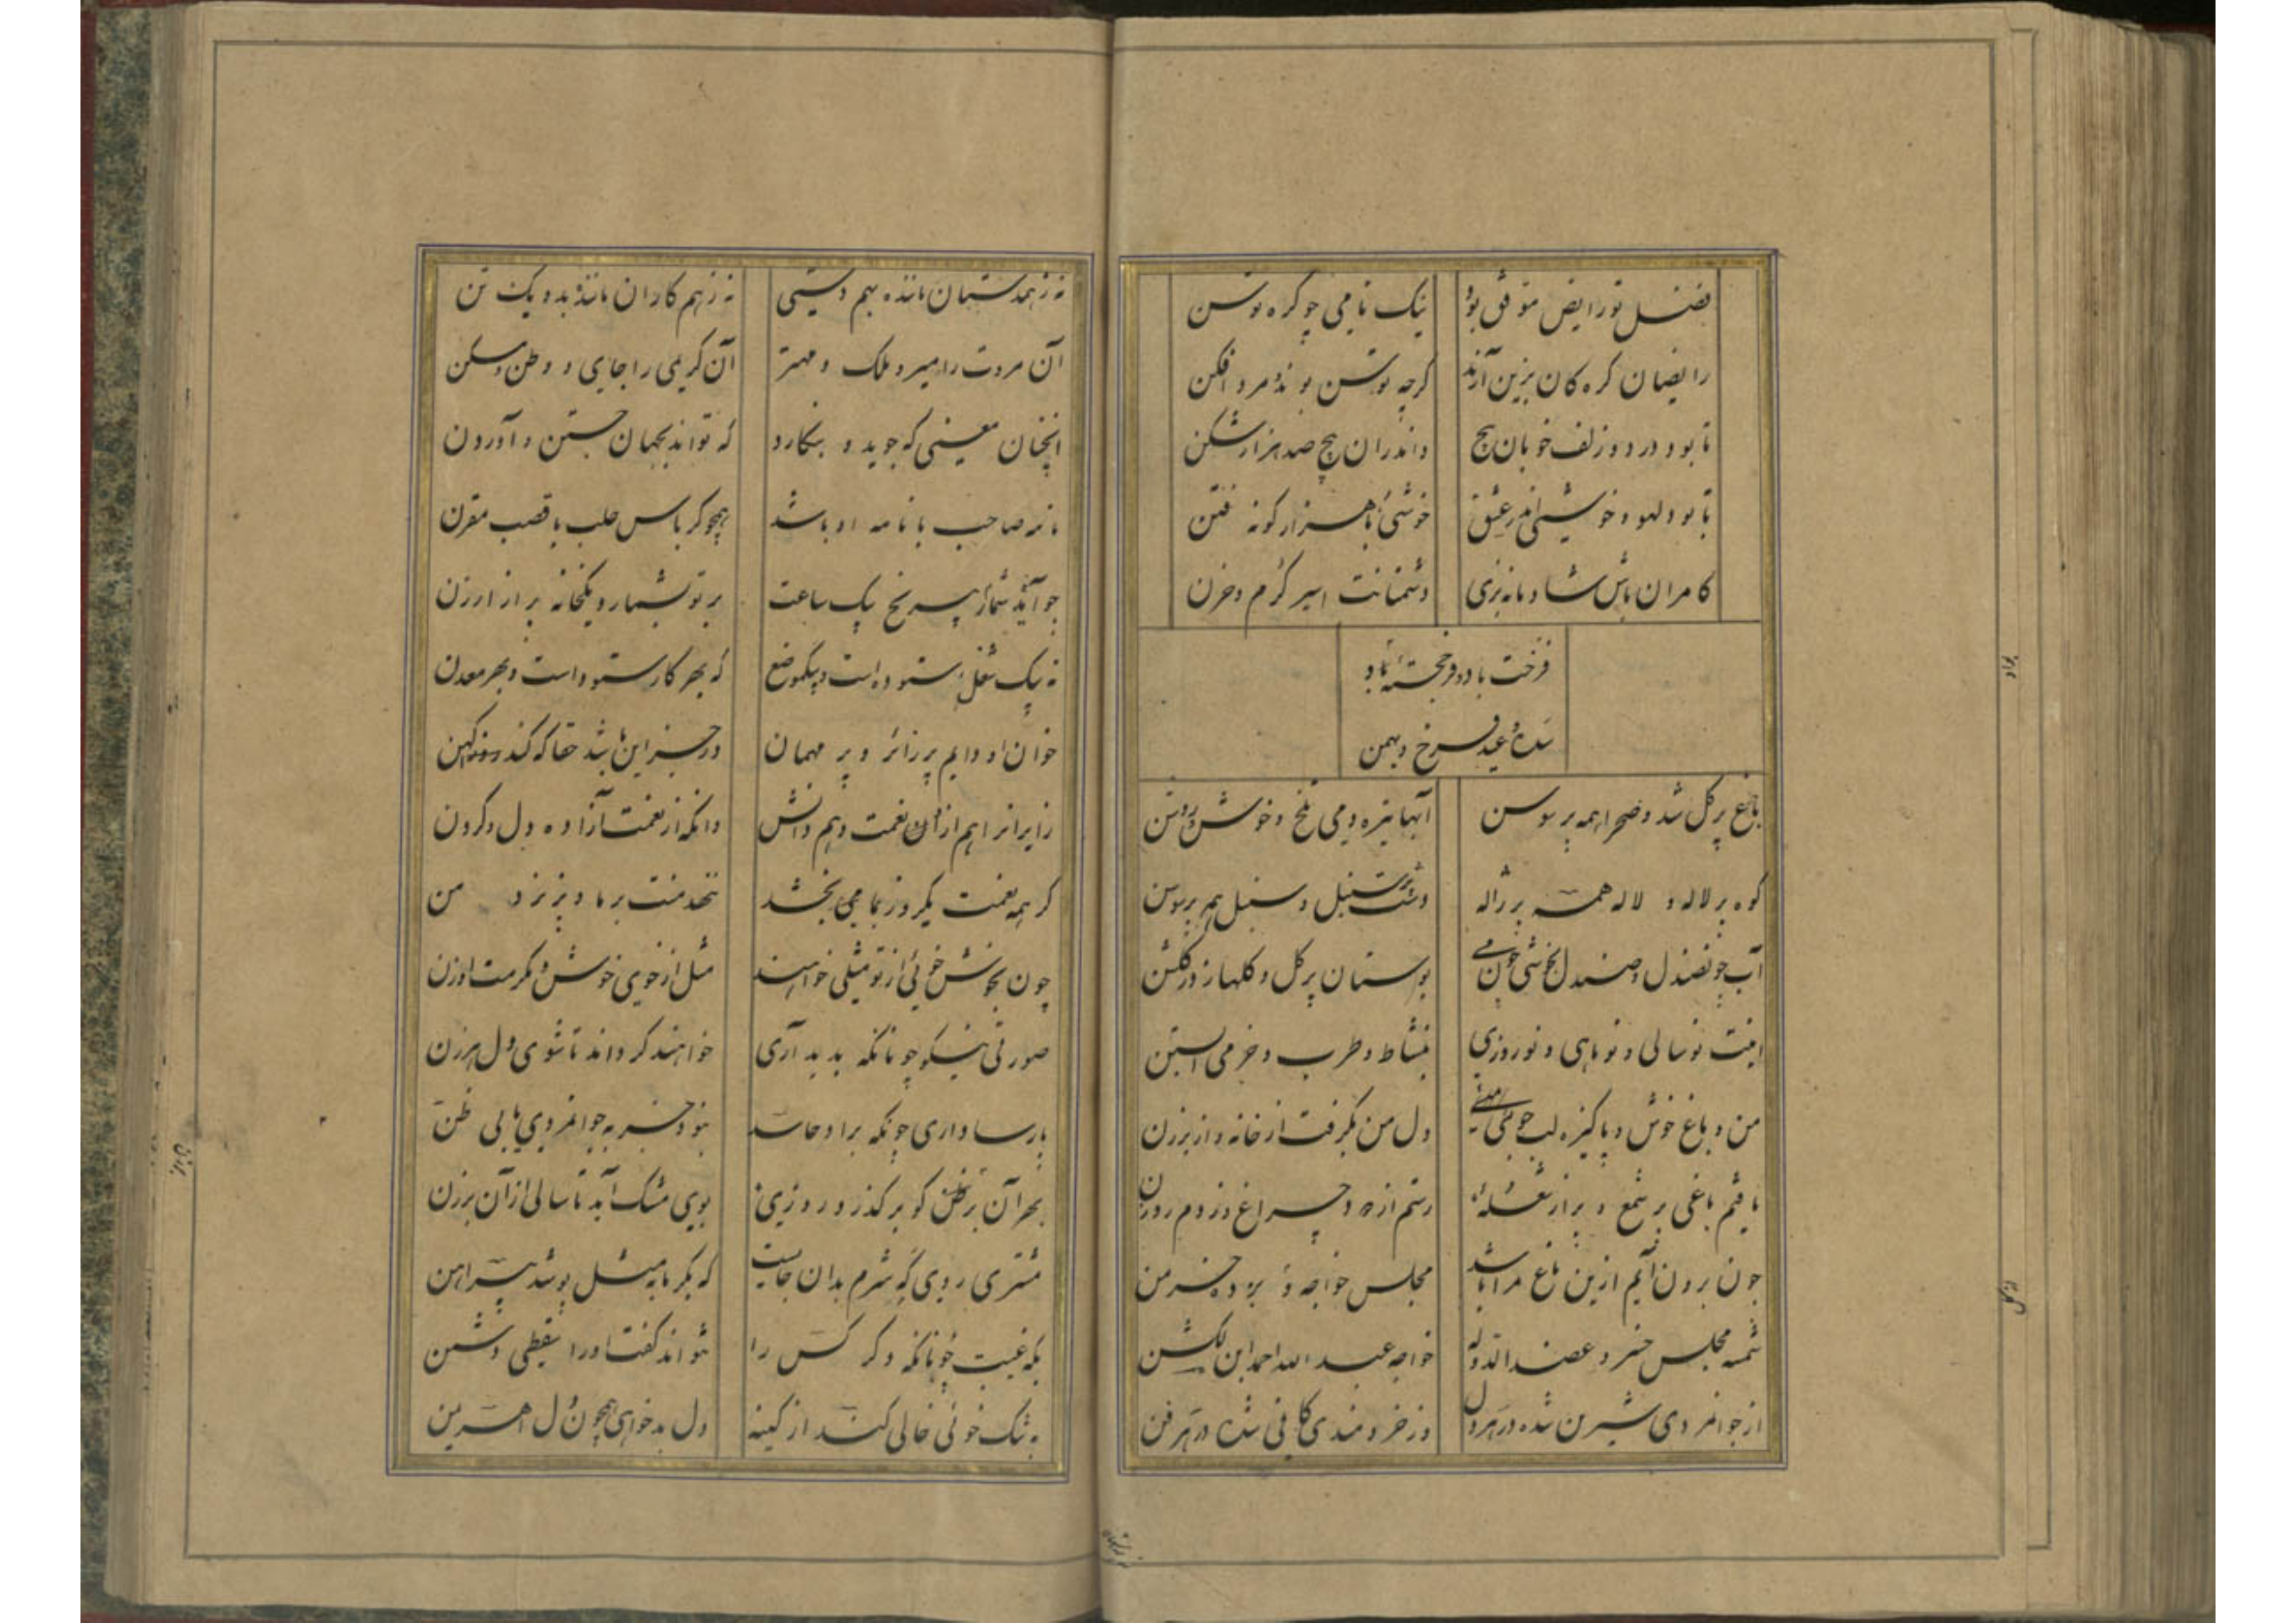 فضل تو رایض موفق بود نیک نامی چو کره توسن
رایضان کره کان بزین آرند کرچه توسن بوند و مرد افکن
تا بود در دو زلف خوبان پیچ واندران پیچ صد هزار شکن
تا بود لهو و خوشی اندر عشق خوشئی با هزار کونه فتن
کامران باش و شادمانه بزی دشمنانت اسیر کرم و حزن
فرخت باد و خجسته باد
سده و عید فرخ و بهمن
باغ پر کل شد و صحرا همه پر سوسن آبها تیره و می تلخ و خوش و روشن
کوه پر لاله و لاله همه پر ژاله دشت پر سنبل و سنبل همه پر سوسن
آب چو صندل و صندل بخوشی چون می بوستان پر کل و کلها ز در کلشن
اینت نوسالی و نوماهی و نوروزی بنشاط و طرب و خرمی آبستن
من و باغ خوش و پاکیزه لب جوئی دل من بکرفت از خانه و از برزن
یافتم باغی پر شمع و پر از شعله رستم از دود چراغ و ز دم روزن
چون برون آیم ازین باغ مرا باشد مجلس خواجه و خرمن
شمسه مجلس خسرو عضد الدوله خواجه عبد الله احمد ابن لکشن
از جوانمردی شیرین شده در هر دل وز خردمندی کافی شده در هر فن
نه ز همدستان مانده بهم دستی نه ز هم کاران مانده بدو یک تن
آن مروت را میر و ملک و مهتر آن کریمی را جای و وطن و مسکن
آنچنان معنی که جوید و بنکارد که تواند بجهان جستن و آوردن
نامه صاحب با نامه او باشد همچو کرباس حلب با قصب مقرن
چو آید شمار پس رنج یک ساعت بر تو بشمارد یکخانه پر از ارزن
نه بیک شغل ستوده است و بیکموضع که بهر کار ستوده است و بهر معدن
خوان او دایم پر زائر و پر مهمان ور جز این باشد حقا که کند
زایرانرا هم ازان نعمت و هم دانش وانکه از نعمت آزاده دل و کردن
کر همه نعمت یکروز بما بخشد ننهد منت بر ما و پذیرد من
چون بخوش خوئی از تو مثلی خواهند مثل از خوی خوش و مکرمت او زن
صورتی نیکو چونانکه بدید آری خواهند کر داند تا شوی و دل هر زن
پارسا واری چونکه بر او حاسد نبود جز به جوانمردی با بی ظن
بهر آن برزن کو بر کذرد روزی بوی مشک آید تا سالی از آن برزن
مشتری روی که شرم بدان جایست که بکرمابه بمثل پوشد پیراهن
نکند غیبت چونانکه دکر کس را نتواند کفت او را سقطی دشمن
به تنک خوئی خالی کند از کینه دل بدخواهی همچون دل اهریمن